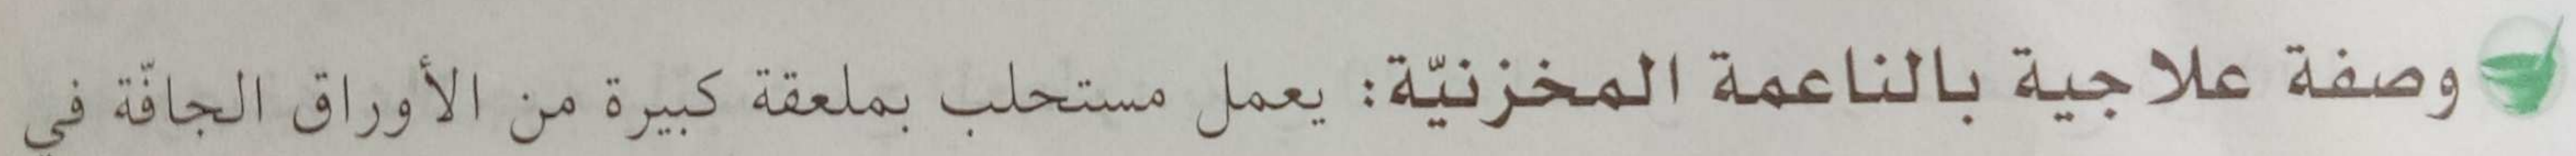 وصفة علاجية بالناعمة المخزنيّة: يعمل مستحلب بملعقة كبيرة من الأوراق الجافّة في